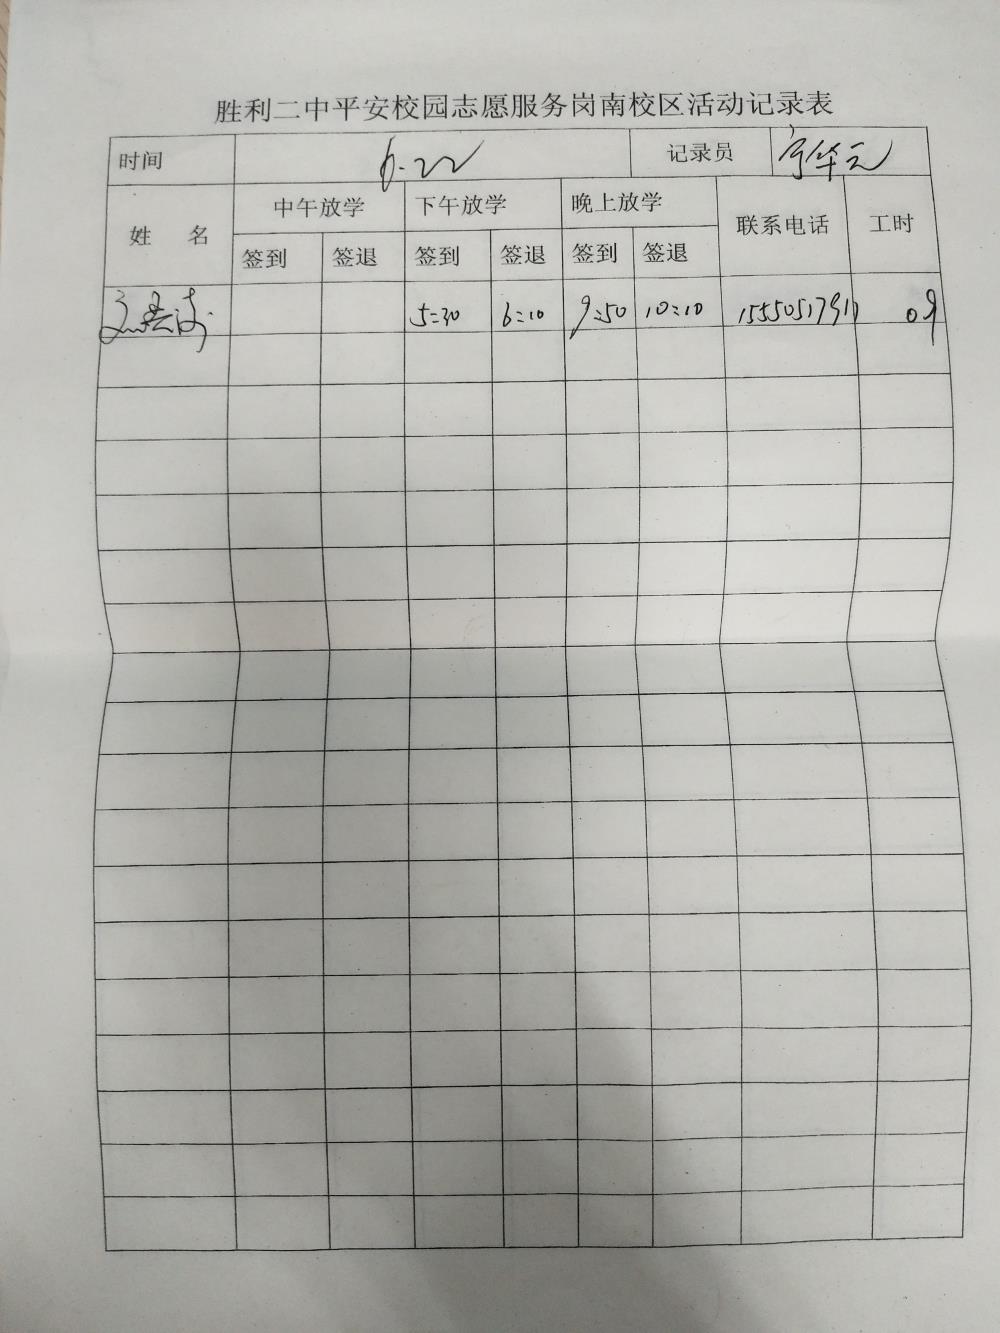 胜利二中平安校园志愿服务岗南校区活动记录表
时间 6.22 记录员
姓 名 中午放学 下午放学 晚上放学 联系电话 工时
签到 签退 签到 签退 签到 签退
5:30 6:10 9:50 10:10